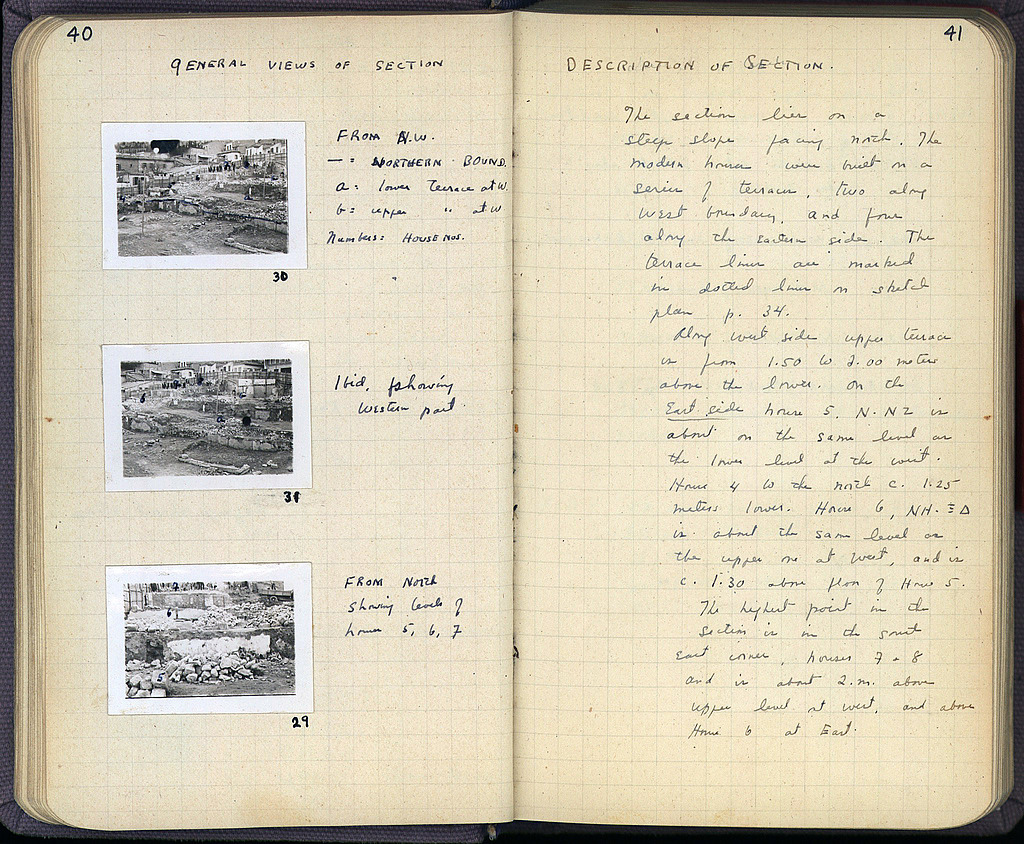 40
GENERAL VIEWS OF SECTION
FROM N.W.
— = NORTHERN BOUND.
a = lower Terrace at W.
b = upper " at W
Numbers = HOUSE NOS.
30
Ibid, showing
Western part.
31
FROM North
showing levels of
houses 5, 6, 7
5
29
41
DESCRIPTION OF SECTION.
The section lies on a
steep slope facing north. The
modern houses were built on a
series of terraces, two along
West boundary, and four
along the Eastern side. The
terrace lines are marked
in dotted lines on sketch
plan p. 34.
Along west side upper terrace
is from 1.50 to 2.00 meters
above the lower. On the
East side house 5, N. NZ is
about on the same level as
the lower level at the west.
House 4 to the north c. 1.25
meters lower. House 6, NH. ΞΔ
is about the same level as
the upper one at West, and is
c. 1.30 above floor of House 5.
The highest point in the
Section is in the south
East corner, houses 7 + 8
and is about 2. m. above
upper level at west, and above
House 6 at East.